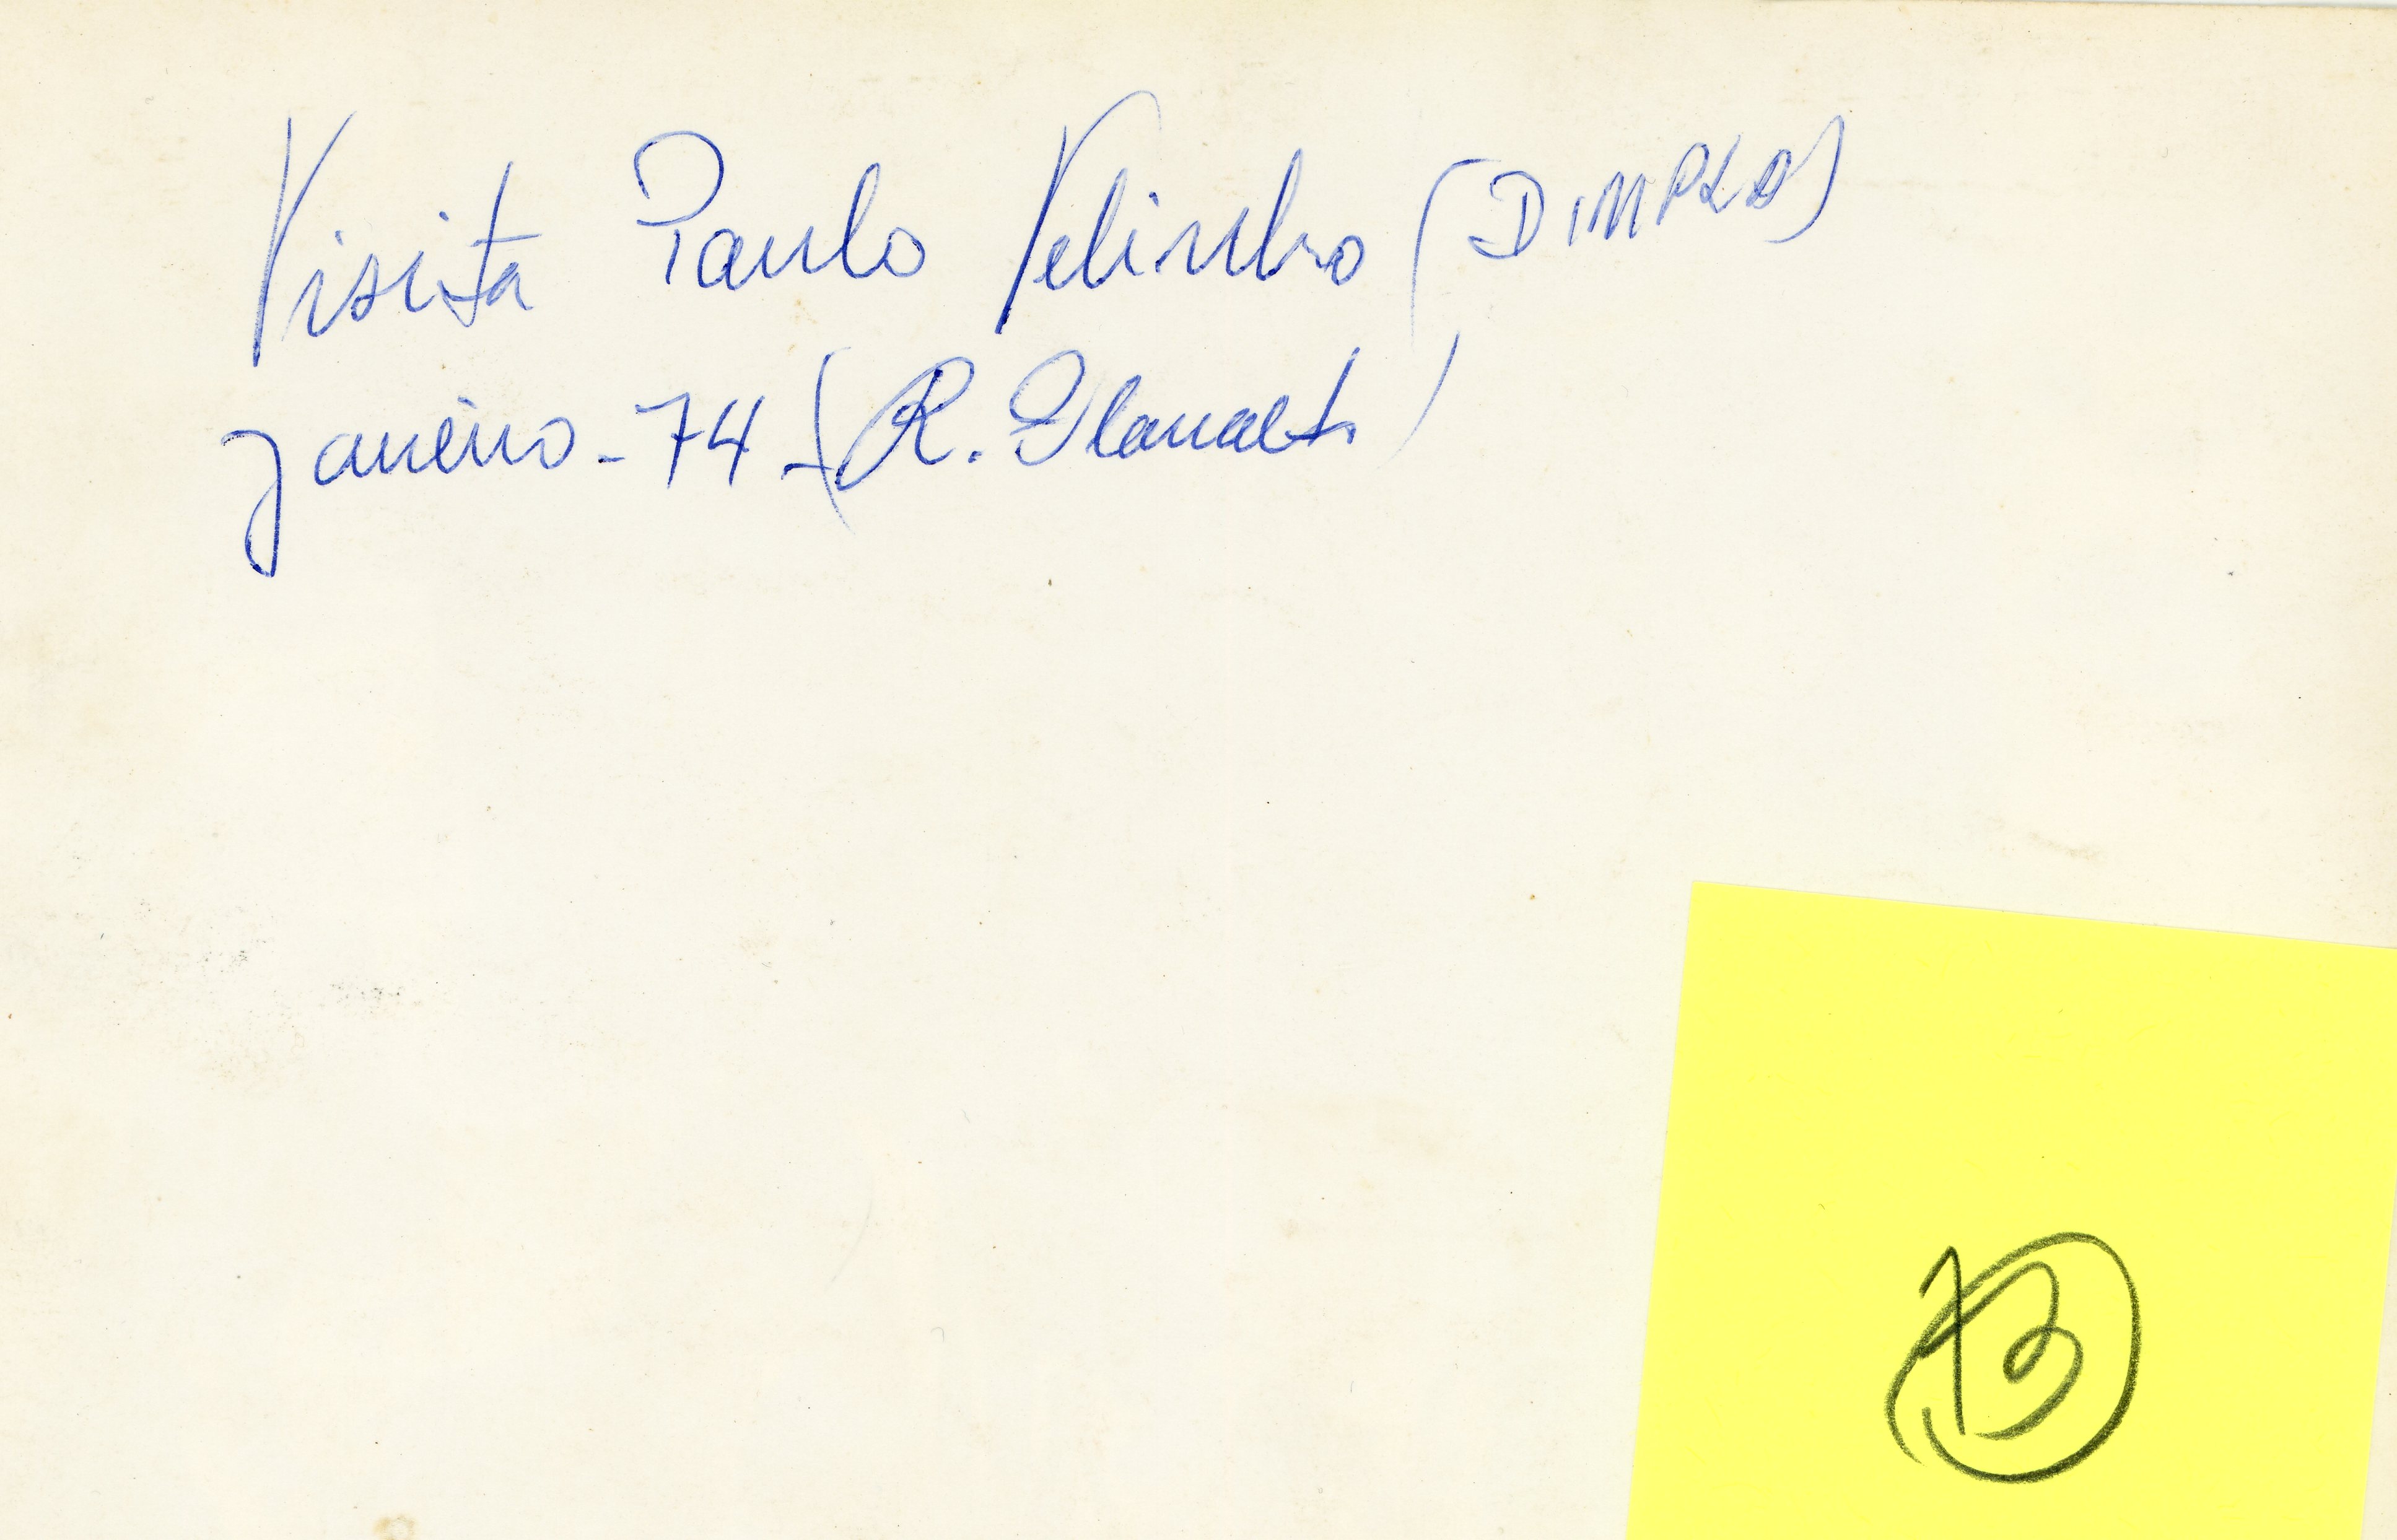 Visita Paulo Velinho (DIMPLO)
Janeiro - 74 - (R.
13